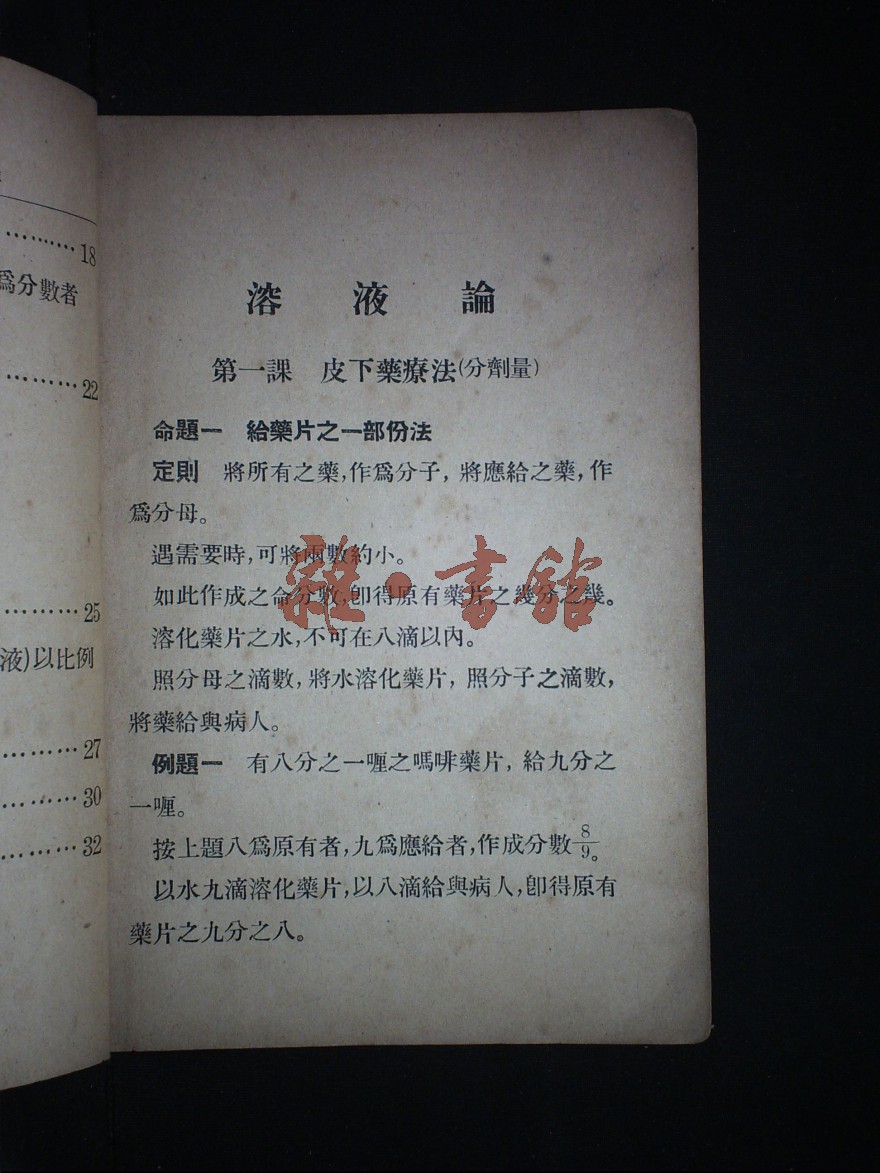 溶液論
第一課 皮下藥療法(分劑量)
命題一 給藥片之一部份法
定則 將所有之藥,作爲分子,將應給之藥,作
爲分母。
遇需要時,可將兩數約小。
如此作成之命分數,卽得原有藥片之幾分之幾。
溶化藥片之水,不可在八滴以內。
照分母之滴數,將水溶化藥片,照分子之滴數,
將藥給與病人。
例題一 有八分之一喱之嗎啡藥片,給九分之
一喱。
按上題八爲原有者,九爲應給者,作成分數8/9。
以水九滴溶化藥片,以八滴給與病人,卽得原有
藥片之九分之八。
雜·書館
………18
爲分數者
………22
………25
液)以比例
………27
………30
………32